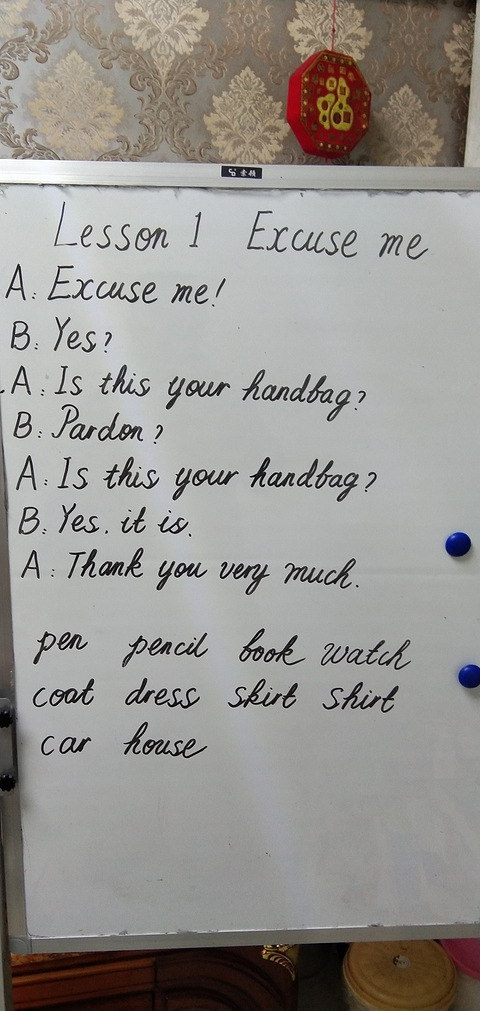 福
索顿
Lesson 1 Excuse me
A: Excuse me!
B: Yes?
A: Is this your handbag?
B: Pardon?
A: Is this your handbag?
B: Yes, it is.
A: Thank you very much.
pen pencil book watch
coat dress skirt shirt
car house